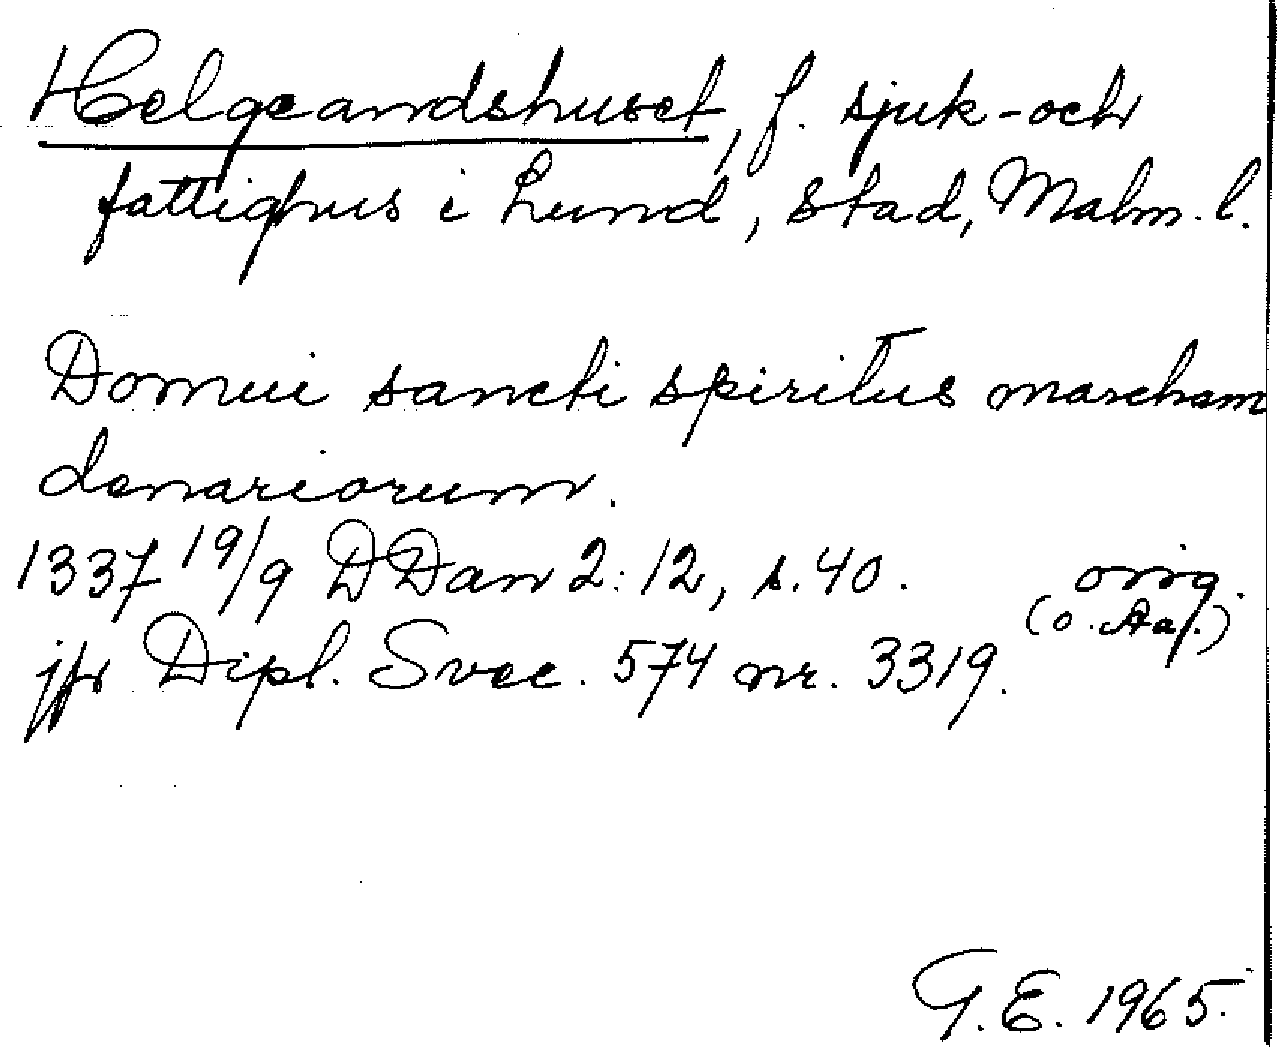 Helgeandshuset, f. sjuk- och
fattighus i Lund, stad, Malm. l.
Domui sancti spiritus marcham
denariorum.
1337 19/9 DDan 2:12, s. 40. orig.
(o. Aaf.)
jfr Dipl. Svec. 574 nr. 3319.
G.E. 1965.